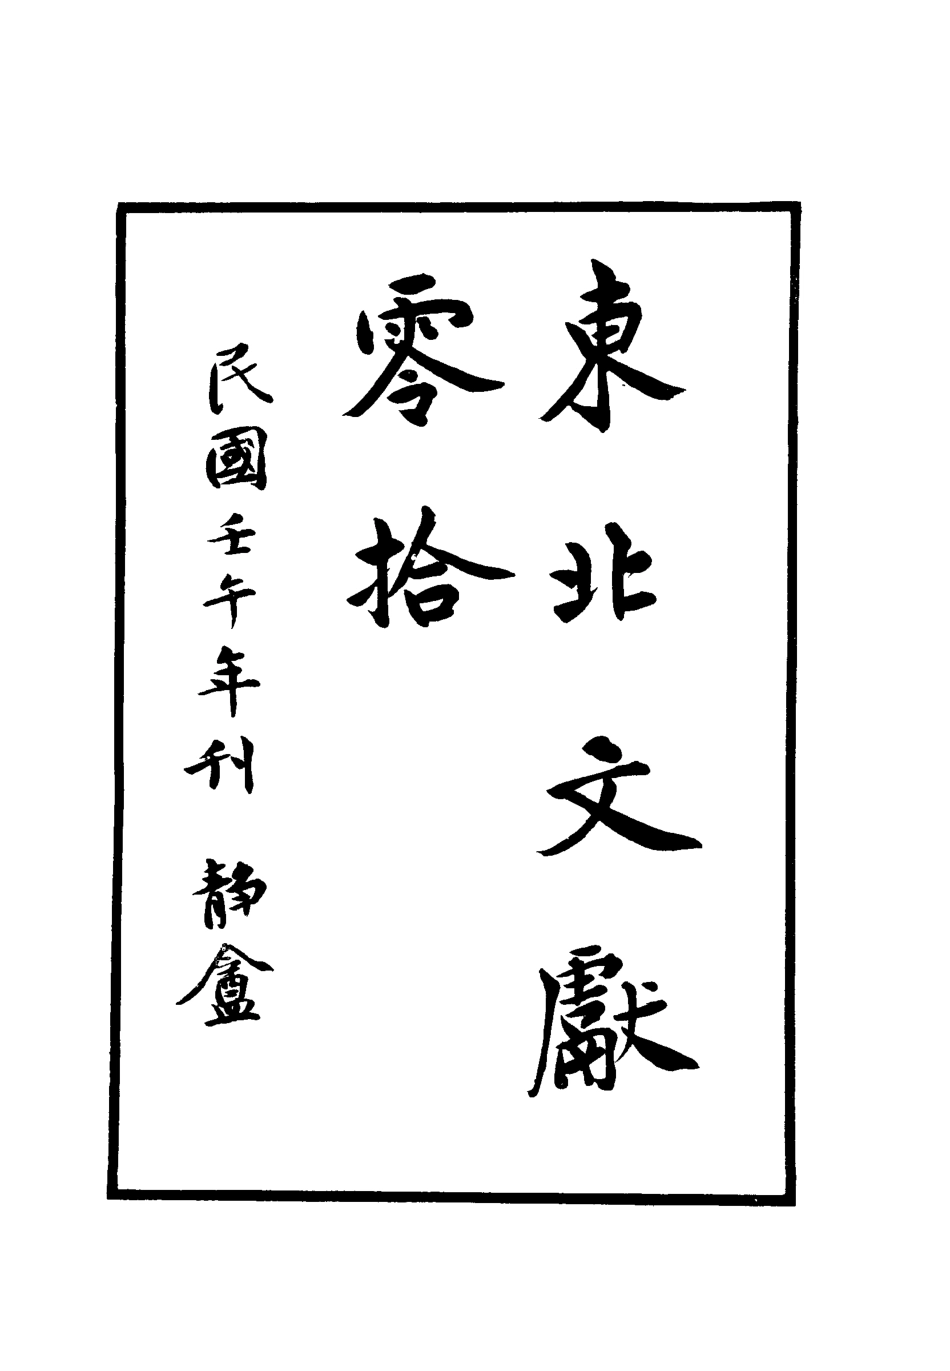 東北文獻
零拾
民國壬午年刊 靜盦